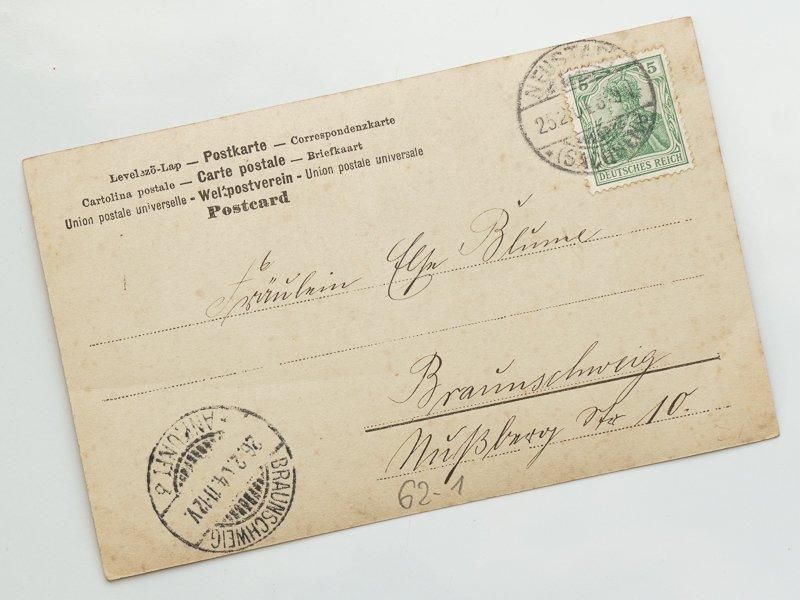 Levelező-Lap — Postkarte — Correspondenzkarte
Cartolina postale — Carte postale — Briefkaart
Union postale universelle - Weltpostverein - Union postale universale
Postcard
5 5
DEUTSCHES REICH
25.2.
Fräulein Else Blume
Braunschweig
Nußberg Str 10.
62-1
BRAUNSCHWEIG
26.2. 4. 11-12V.
ANKUNFT